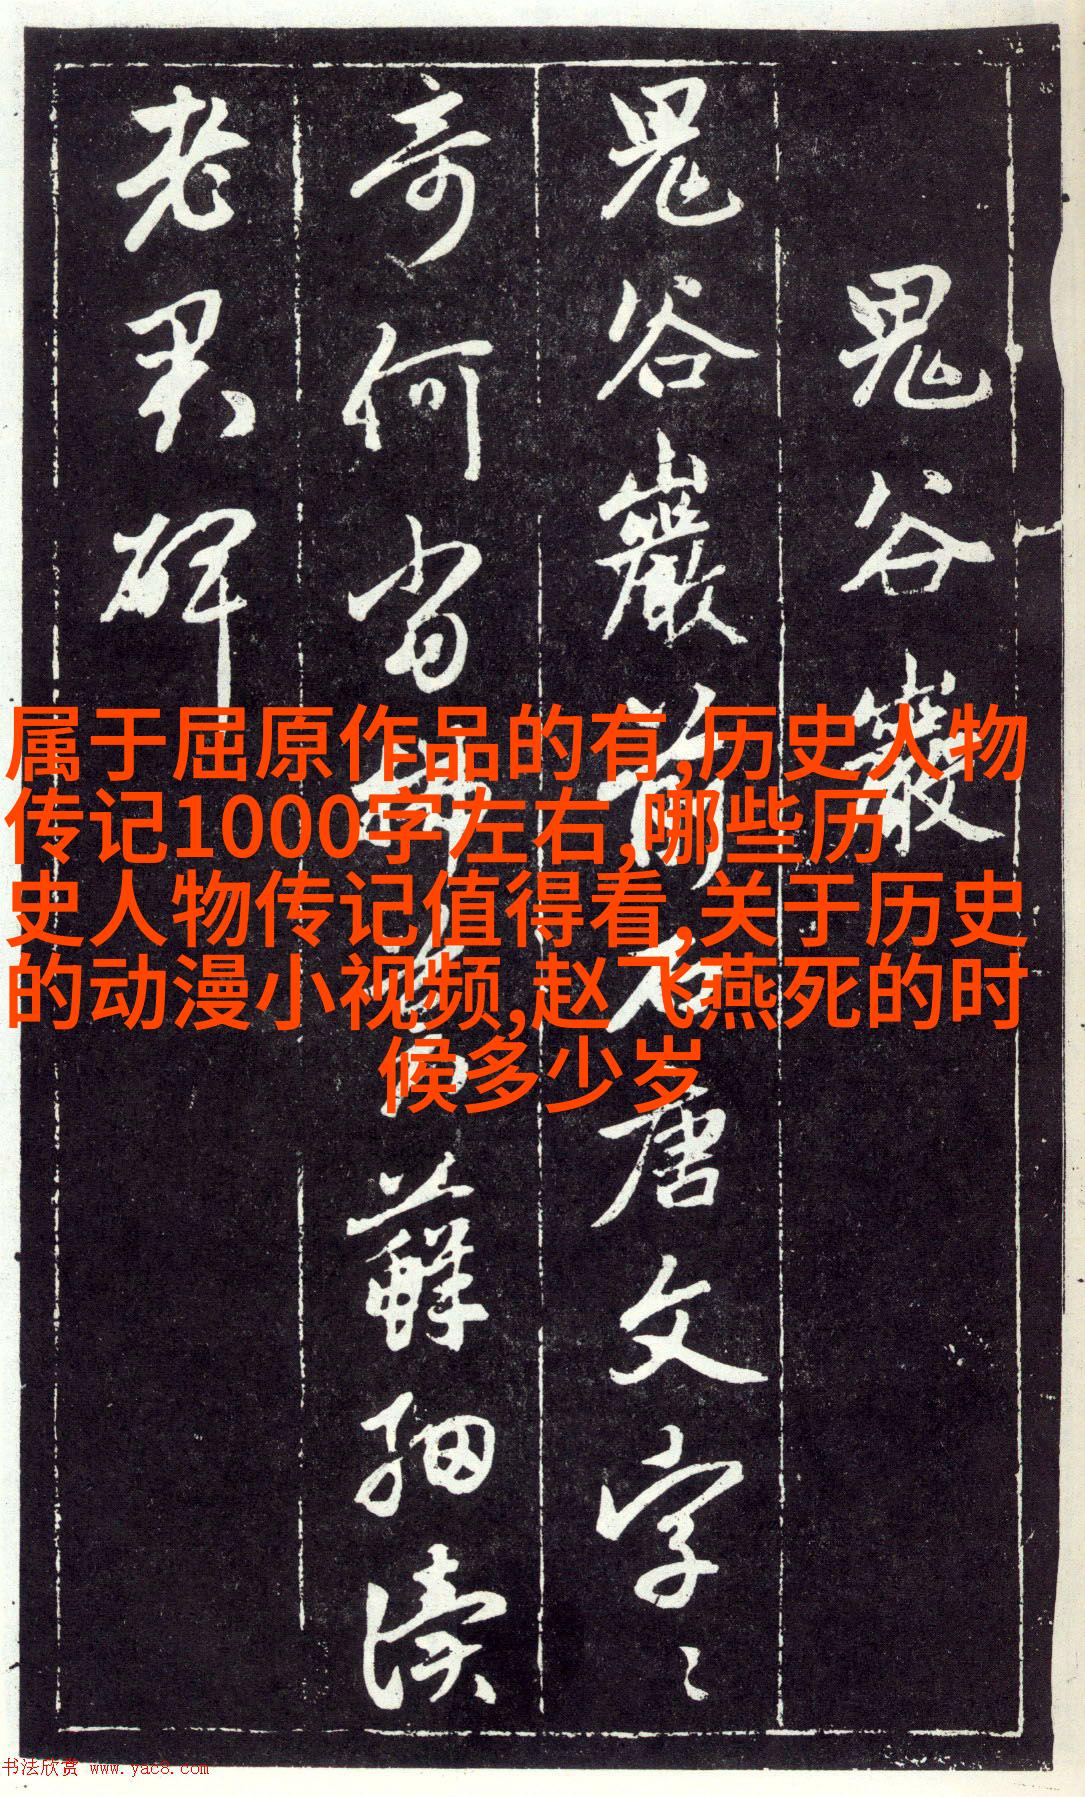 鬼谷巖
鬼谷巖前石唐文字〻
奇何當掃苔蘚細讀
老君碑
属于屈原作品的有,历史人物
传记1000字左右,哪些历
史人物传记值得看,关于历史
的动漫小视频,赵飞燕死的时
候多少岁
书法欣赏 www.yac8.com